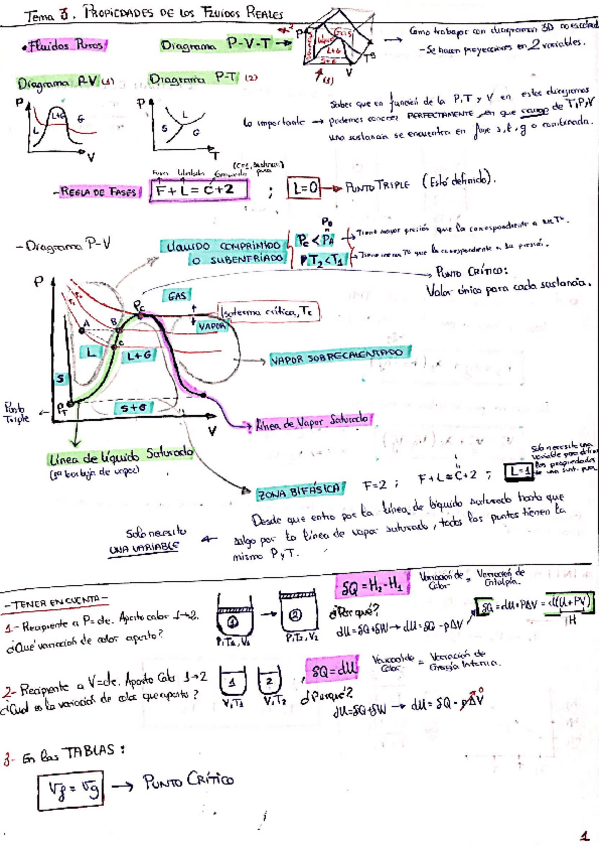 Tema 3. PROPIEDADES DE LOS FLUIDOS REALES
• Fluidos Puros
Diagrama P-V-T →
→ Como trabajar con diagramas 3D
- Se hacen proyecciones en 2 variables.
Diagrama P-V (1)
Diagrama P-T (2)
(3)
P
L
L+G
G
V
P
S
L
G
T
Lo importante →
Saber que en función de la P, T y V en estos diagramas
podemos conocer PERFECTAMENTE en que rango de T, P, V
una sustancia se encuentra en fase s, l, g o combinada.
- REGLA DE FASES
F + L = C + 2 ; L=0 → PUNTO TRIPLE (Está definido).
- Diagrama P-V
LÍQUIDO COMPRIMIDO
O SUBENFRIADO
→ Tiene mayor presión que la correspondiente a su Tª.
T2 < T1 → Tiene menos Tª que la correspondiente a su presión.
PUNTO CRÍTICO:
Valor único para cada sustancia.
P
GAS
Pc
Isoterma crítica, Tc
A
B
VAPOR
C
L
L+G
VAPOR SOBRECALENTADO
S
PT
S+G
V
Punto
Triple
Línea de Vapor Saturado
Línea de Líquido Saturado
(1ª burbuja de vapor)
ZONA BIFÁSICA
F=2 ; F+L=C+2 ; L=1
Solo necesito una
variable para definir
las propiedades
de una sust. pura
Desde que entro por la línea de líquido saturado hasta que
salgo por la línea de vapor saturado, todos los puntos tienen la
misma P y T.
Solo necesito
UNA VARIABLE
- TENER EN CUENTA -
1- Recipiente a P=cte. Aporto calor 1→2.
¿Qué variación de calor aporto?
1
2
P, T2, V2
δQ = H2 - H1
Variación de
Calor = Variación de
Entalpía.
¿Por qué?
dU = δQ + δW → dU = δQ - pΔV
δQ = dU + PΔV = d(U + PV)
H
2- Recipiente a V=cte. Aporto Calor 1→2
¿Cual es la variación de calor que aporto?
1
2
V, T1
V, T2
δQ = dU
Variación de
Calor = Variación de
Energía Interna.
¿Porqué?
dU = δQ + δW → dU = δQ - pΔV
0
3- En las TABLAS:
Vf = Vg → PUNTO CRÍTICO
1